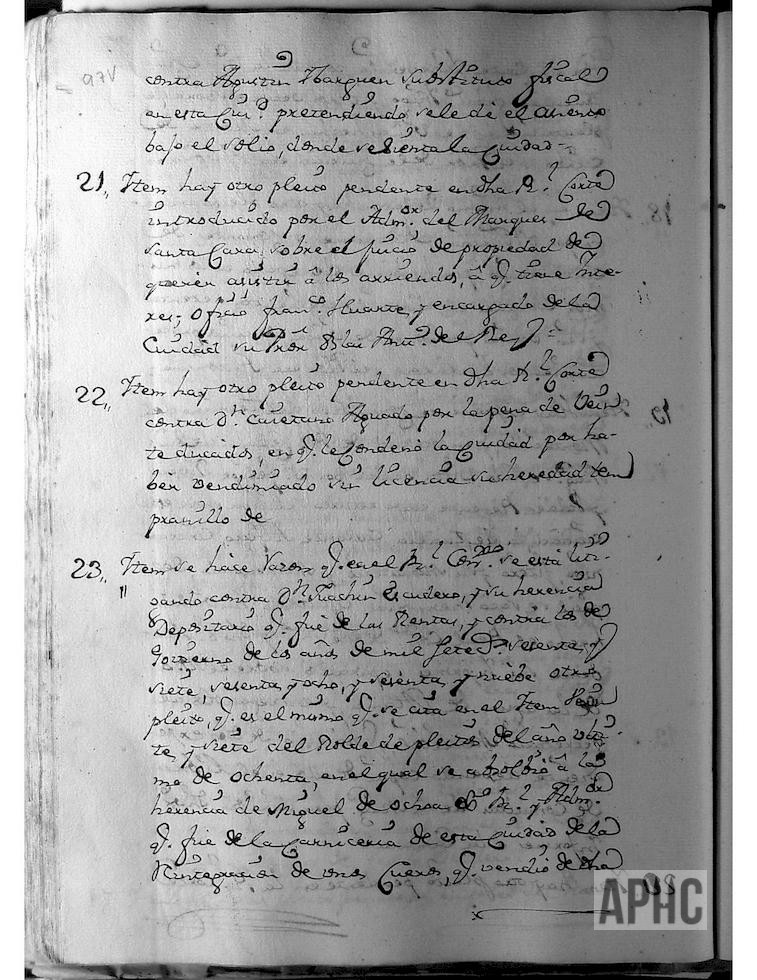 97v
contra Agustin Ibarguen Substituto fiscal
en esta Ciu.d pretendiendo se le dè el asiento
bajo el Solio, donde se sienta la Ciudad =
21,, Item hay otro pleito pendente en dha R.l Corte
introducido por el Adm.or del Marques de
Santa Cara, sobre el juicio de propiedad de
querer asistir â los arriendos, â q.e tiene Inte-
res; Oficio fran.co Huarte, y encargado de la
Ciudad su Pror de las Aud.as del Rey =
22,, Item hay otro pleito pendente en dha R.l Corte
contra D.n Caietano Aguado por la pena de Vein
te ducados, en q.e le Condenó la Ciudad por ha-
ber vendimiado sin licencia su heredad tem
pranillo de
23,, Item se hace Razon q.e en el R.l Con.º se està liti-
gando contra D.n Juachin Escudero, y su herencia
Depositario q.e fuè de las Rentas, y contra los de
Govierno de los años de mil Setec.s sesenta, y
siete, sesenta y ocho, y sesenta y nuebe otro
pleito, q.e es el mismo q.e se cita en el Item
te, y siete del Rolde de pleitos del año ulti-
mo de ochenta, en el qual se absolbió â la
herencia de Miguel de Ochoa y Adm.or
q.e fue de la Carniceria de esta Ciudad de la
Reintegracion de unos Cueros, q.e vendió de dha
APHC